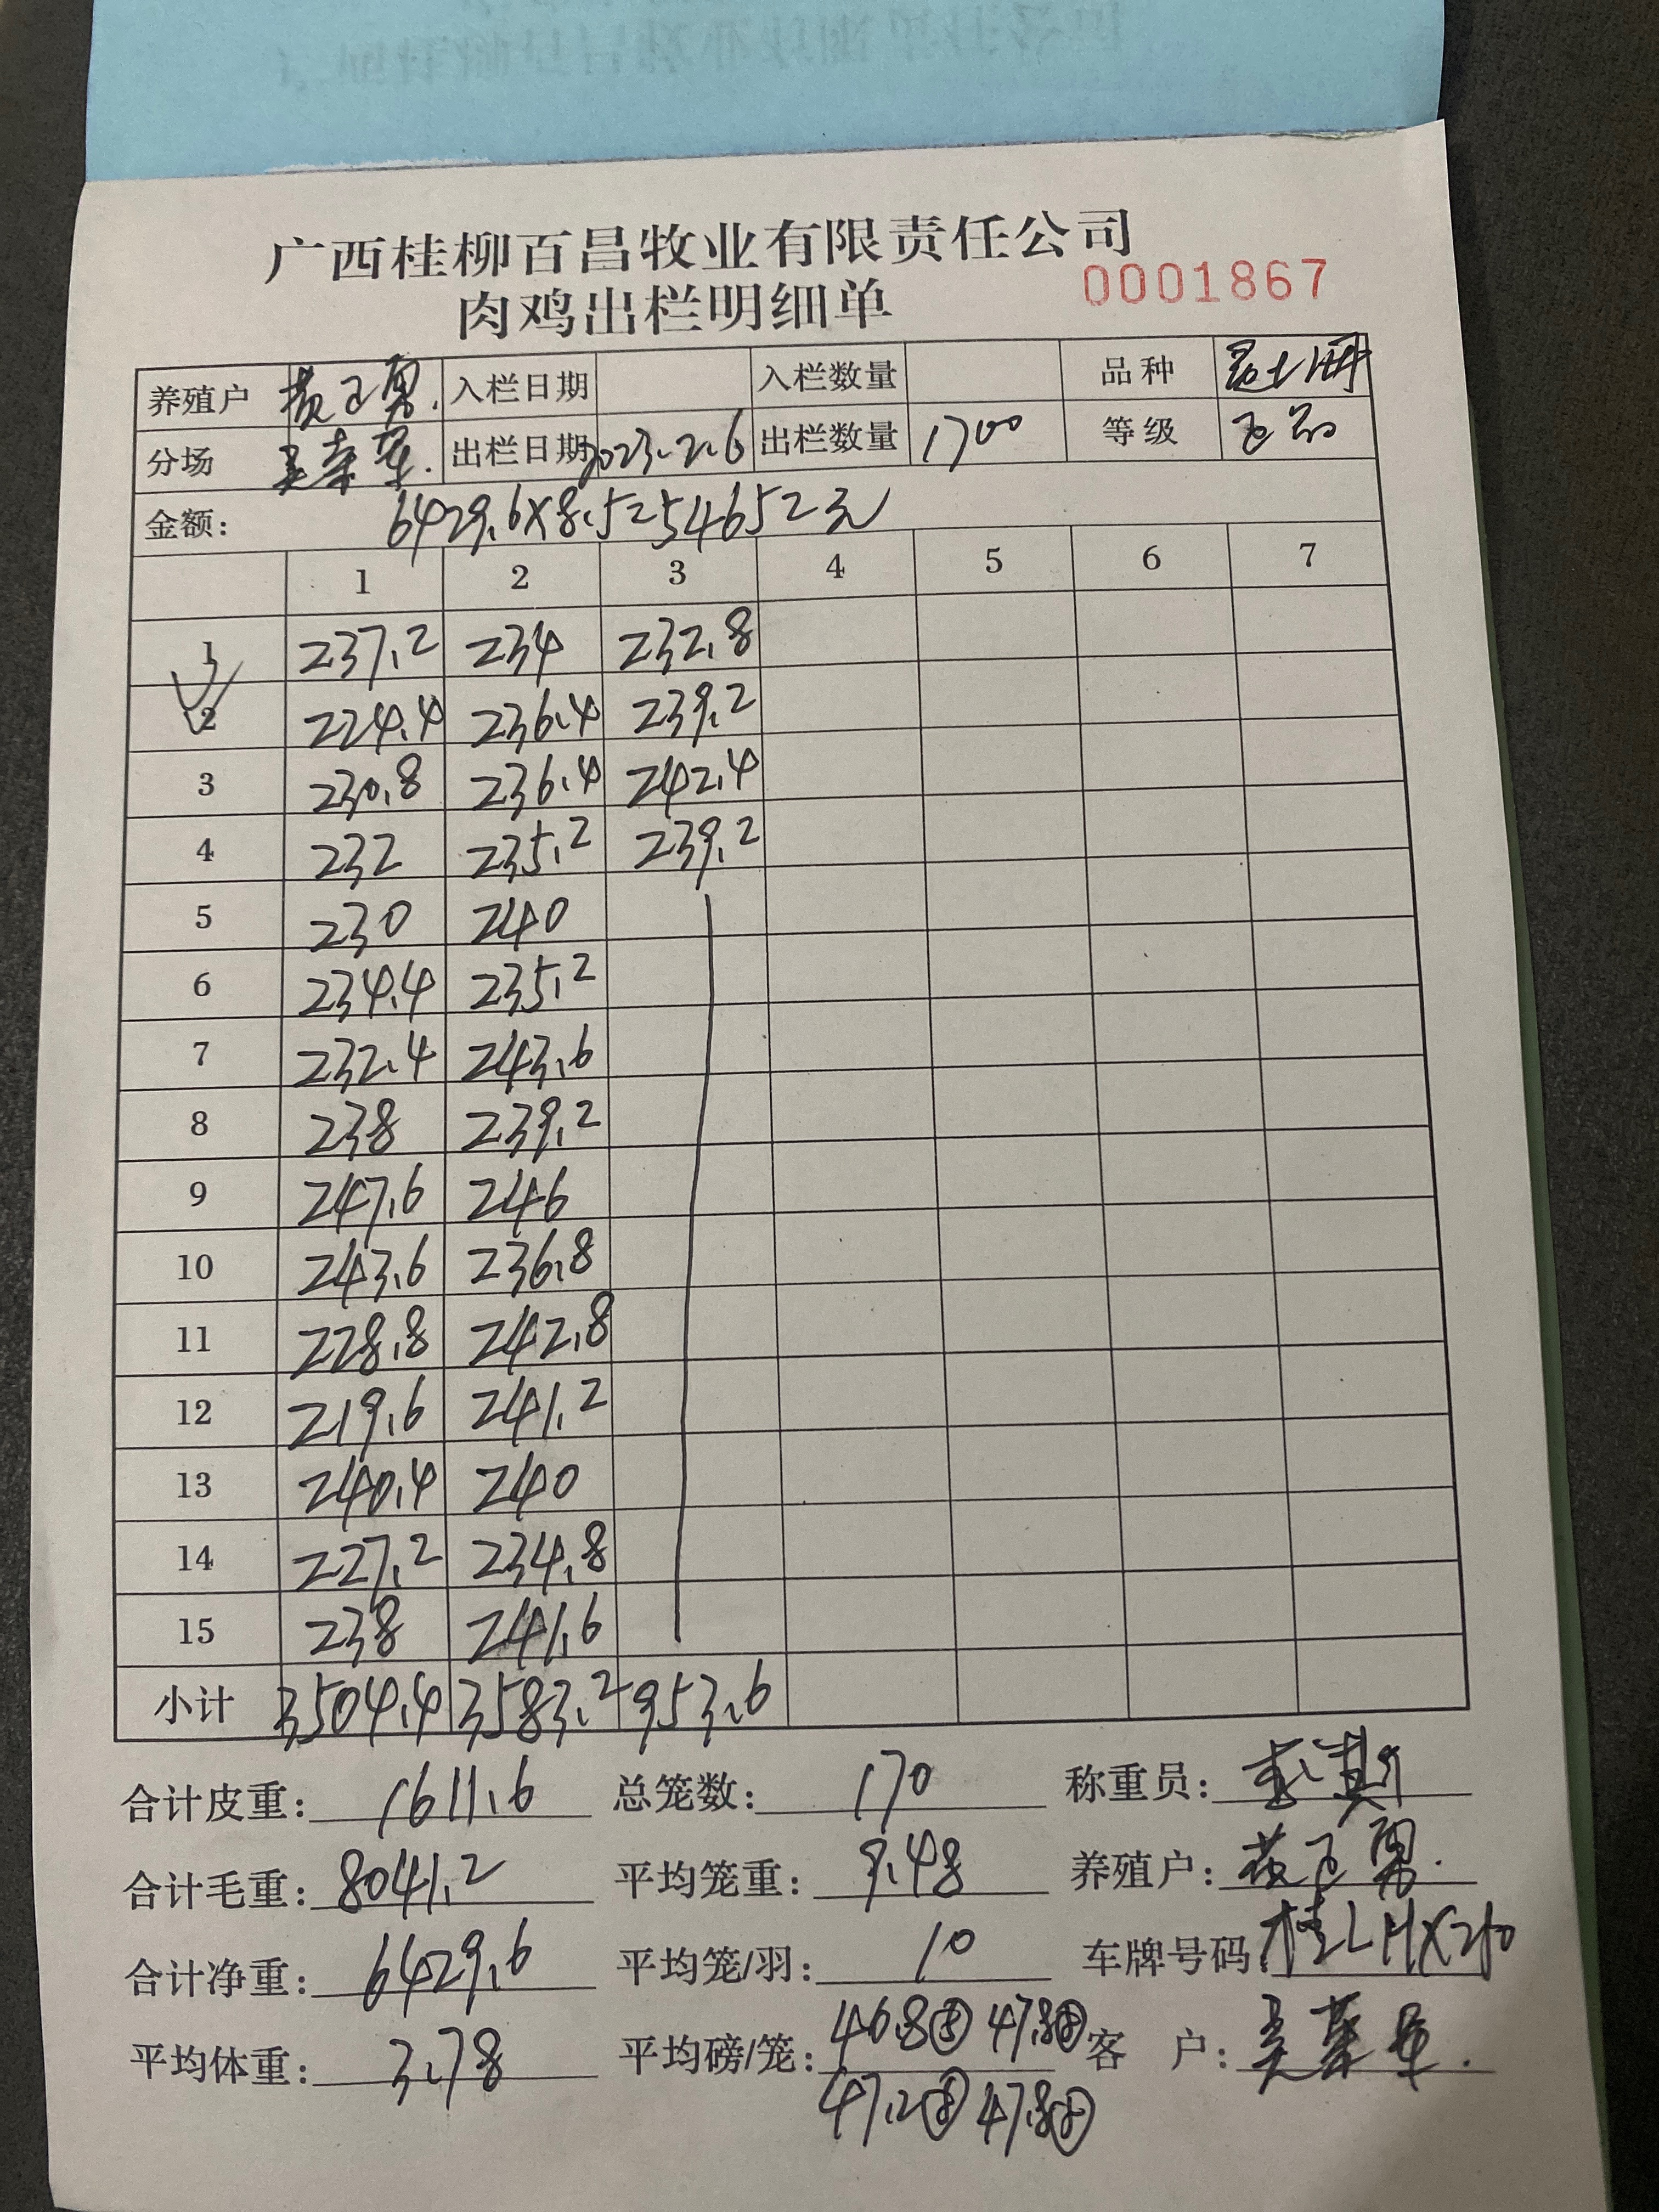 广西桂柳百昌牧业有限责任公司
肉鸡出栏明细单 0001867
养殖户 入栏日期 入栏数量 品种
分场 出栏日期 2023.2.6 出栏数量 1700 等级
金额: 6429.6×8.5=54652元
1 2 3 4 5 6 7
1 237.2 234 232.8
2 224.4 236.4 239.2
3 230.8 236.4 242.4
4 232 235.2 239.2
5 230 240
6 234.4 235.2
7 232.4 243.6
8 238 239.2
9 247.6 246
10 243.6 236.8
11 228.8 242.8
12 219.6 241.2
13 240.4 240
14 227.2 234.8
15 238 241.6
小计 3504.4 3583.2 953.6
合计皮重: 1611.6 总笼数: 170 称重员:
合计毛重: 8041.2 平均笼重: 9.48 养殖户:
合计净重: 6429.6 平均笼/羽: 10 车牌号码
平均体重: 3.78 平均磅/笼: 46.8⑤ 47.8⑤ 客 户:
47.2⑤ 47.8⑤